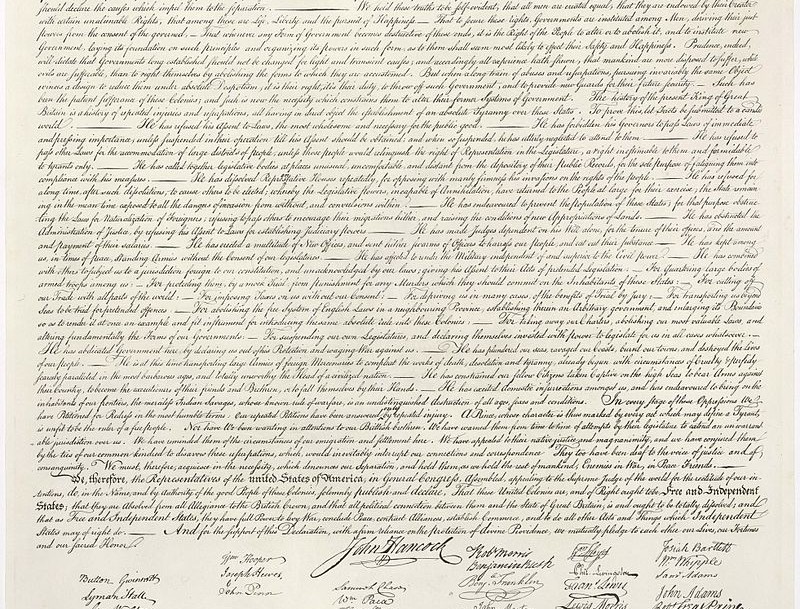 should declare the causes which impel them to the separation. We hold these truths to be self-evident, that all men are created equal, that they are endowed by their Creator
with certain unalienable Rights, that among these are Life, Liberty and the pursuit of Happiness.— That to secure these rights, Governments are instituted among Men, deriving their just
powers from the consent of the governed,— That whenever any Form of Government becomes destructive of these ends, it is the Right of the People to alter or to abolish it, and to institute new
Government, laying its foundation on such principles and organizing its powers in such form, as to them shall seem most likely to effect their Safety and Happiness. Prudence, indeed,
will dictate that Governments long established should not be changed for light and transient causes; and accordingly all experience hath shewn, that mankind are more disposed to suffer, while
evils are sufferable, than to right themselves by abolishing the forms to which they are accustomed. But when a long train of abuses and usurpations, pursuing invariably the same Object
evinces a design to reduce them under absolute Despotism, it is their right, it is their duty, to throw off such Government, and to provide new Guards for their future security.— Such has
been the patient sufferance of these Colonies; and such is now the necessity which constrains them to alter their former Systems of Government. The history of the present King of Great
Britain is a history of repeated injuries and usurpations, all having in direct object the establishment of an absolute Tyranny over these States. To prove this, let Facts be submitted to a candid
world. He has refused his Assent to Laws, the most wholesome and necessary for the public good. He has forbidden his Governors to pass Laws of immediate
and pressing importance, unless suspended in their operation till his Assent should be obtained; and when so suspended, he has utterly neglected to attend to them. He has refused to
pass other Laws for the accommodation of large districts of people, unless those people would relinquish the right of Representation in the Legislature, a right inestimable to them and formidable
to tyrants only. He has called together legislative bodies at places unusual, uncomfortable, and distant from the depository of their public Records, for the sole purpose of fatiguing them into
compliance with his measures. He has dissolved Representative Houses repeatedly, for opposing with manly firmness his invasions on the rights of the people. He has refused for
a long time, after such dissolutions, to cause others to be elected; whereby the Legislative powers, incapable of Annihilation, have returned to the People at large for their exercise; the State remain-
ing in the mean time exposed to all the dangers of invasion from without, and convulsions within. He has endeavoured to prevent the population of these States; for that purpose obstruc-
ting the Laws for Naturalization of Foreigners; refusing to pass others to encourage their migrations hither, and raising the conditions of new Appropriations of Lands. He has obstructed the
Administration of Justice, by refusing his Assent to Laws for establishing Judiciary powers. He has made Judges dependent on his Will alone, for the tenure of their offices, and the amount
and payment of their salaries. He has erected a multitude of New Offices, and sent hither swarms of Officers to harrass our people, and eat out their substance. He has kept among
us, in times of peace, Standing Armies without the Consent of our legislatures. He has affected to render the Military independent of and superior to the Civil power. He has combined
with others to subject us to a jurisdiction foreign to our constitution, and unacknowledged by our laws; giving his Assent to their Acts of pretended Legislation:— For Quartering large bodies of
armed troops among us:— For protecting them, by a mock Trial, from punishment for any Murders which they should commit on the Inhabitants of these States:— For cutting off
our Trade with all parts of the world:— For imposing Taxes on us without our Consent:— For depriving us in many cases, of the benefits of Trial by Jury:— For transporting us beyond
Seas to be tried for pretended offences— For abolishing the free System of English Laws in a neighbouring Province, establishing therein an Arbitrary government, and enlarging its Boundaries
so as to render it at once an example and fit instrument for introducing the same absolute rule into these Colonies:— For taking away our Charters, abolishing our most valuable Laws, and
altering fundamentally the Forms of our Governments:— For suspending our own Legislatures, and declaring themselves invested with power to legislate for us in all cases whatsoever.—
He has abdicated Government here, by declaring us out of his Protection and waging War against us.— He has plundered our seas, ravaged our Coasts, burnt our towns, and destroyed the lives
of our people.— He is at this time transporting large Armies of foreign Mercenaries to compleat the works of death, desolation and tyranny, already begun with circumstances of Cruelty & perfidy
scarcely paralleled in the most barbarous ages, and totally unworthy the Head of a civilized nation.— He has constrained our fellow Citizens taken Captive on the high Seas to bear Arms against
their Country, to become the executioners of their friends and Brethren, or to fall themselves by their Hands.— He has excited domestic insurrections amongst us, and has endeavoured to bring on the
inhabitants of our frontiers, the merciless Indian Savages, whose known rule of warfare, is an undistinguished destruction of all ages, sexes and conditions. In every stage of these Oppressions We
have Petitioned for Redress in the most humble terms: Our repeated Petitions have been answered only by repeated injury. A Prince, whose character is thus marked by every act which may define a Tyrant,
is unfit to be the ruler of a free people. Nor have We been wanting in attentions to our Brittish brethren. We have warned them from time to time of attempts by their legislature to extend an unwarrant-
able jurisdiction over us. We have reminded them of the circumstances of our emigration and settlement here. We have appealed to their native justice and magnanimity, and we have conjured them
by the ties of our common kindred to disavow these usurpations, which, would inevitably interrupt our connections and correspondence. They too have been deaf to the voice of justice and of
consanguinity. We must, therefore, acquiesce in the necessity, which denounces our Separation, and hold them, as we hold the rest of mankind, Enemies in War, in Peace Friends.
We, therefore, the Representatives of the united States of America, in General Congress, Assembled, appealing to the Supreme Judge of the world for the rectitude of our in-
tentions, do, in the Name, and by Authority of the good People of these Colonies, solemnly publish and declare, That these United Colonies are, and of Right ought to be Free and Independent
States; that they are Absolved from all Allegiance to the British Crown, and that all political connection between them and the State of Great Britain, is and ought to be totally dissolved; and
that as Free and Independent States, they have full Power to levy War, conclude Peace, contract Alliances, establish Commerce, and to do all other Acts and Things which Independent
States may of right do. And for the support of this Declaration, with a firm reliance on the protection of divine Providence, we mutually pledge to each other our Lives, our Fortunes
and our sacred Honor.
John Hancock
Button Gwinnett
Lyman Hall
Wm Hooper
Joseph Hewes
John Penn
Samuel Chase
Wm Paca
Robt Morris
Benjamin Rush
Benja Franklin
Wm Floyd
Phil. Livingston
Frans Lewis
Lewis Morris
Josiah Bartlett
Wm Whipple
Saml Adams
John Adams
Robt Treat Paine